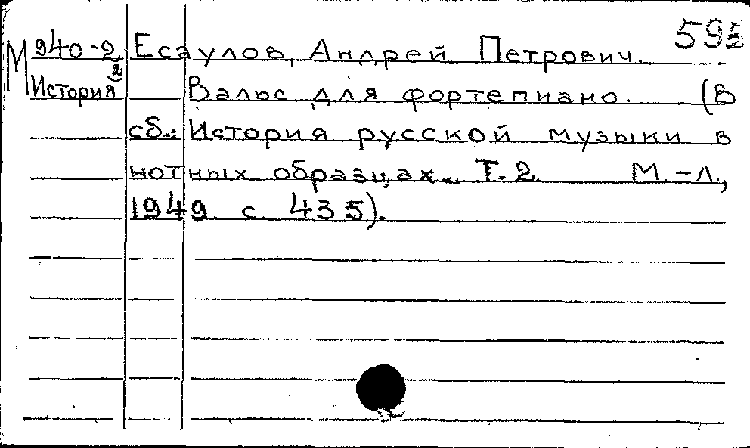 М 940-2 Есаулов, Андрей Петрович.
История Вальс для фортепиано. (В
сб.: История русской музыки в
нотных образцах. Т. 2. М.-Л.,
1949 с. 435).